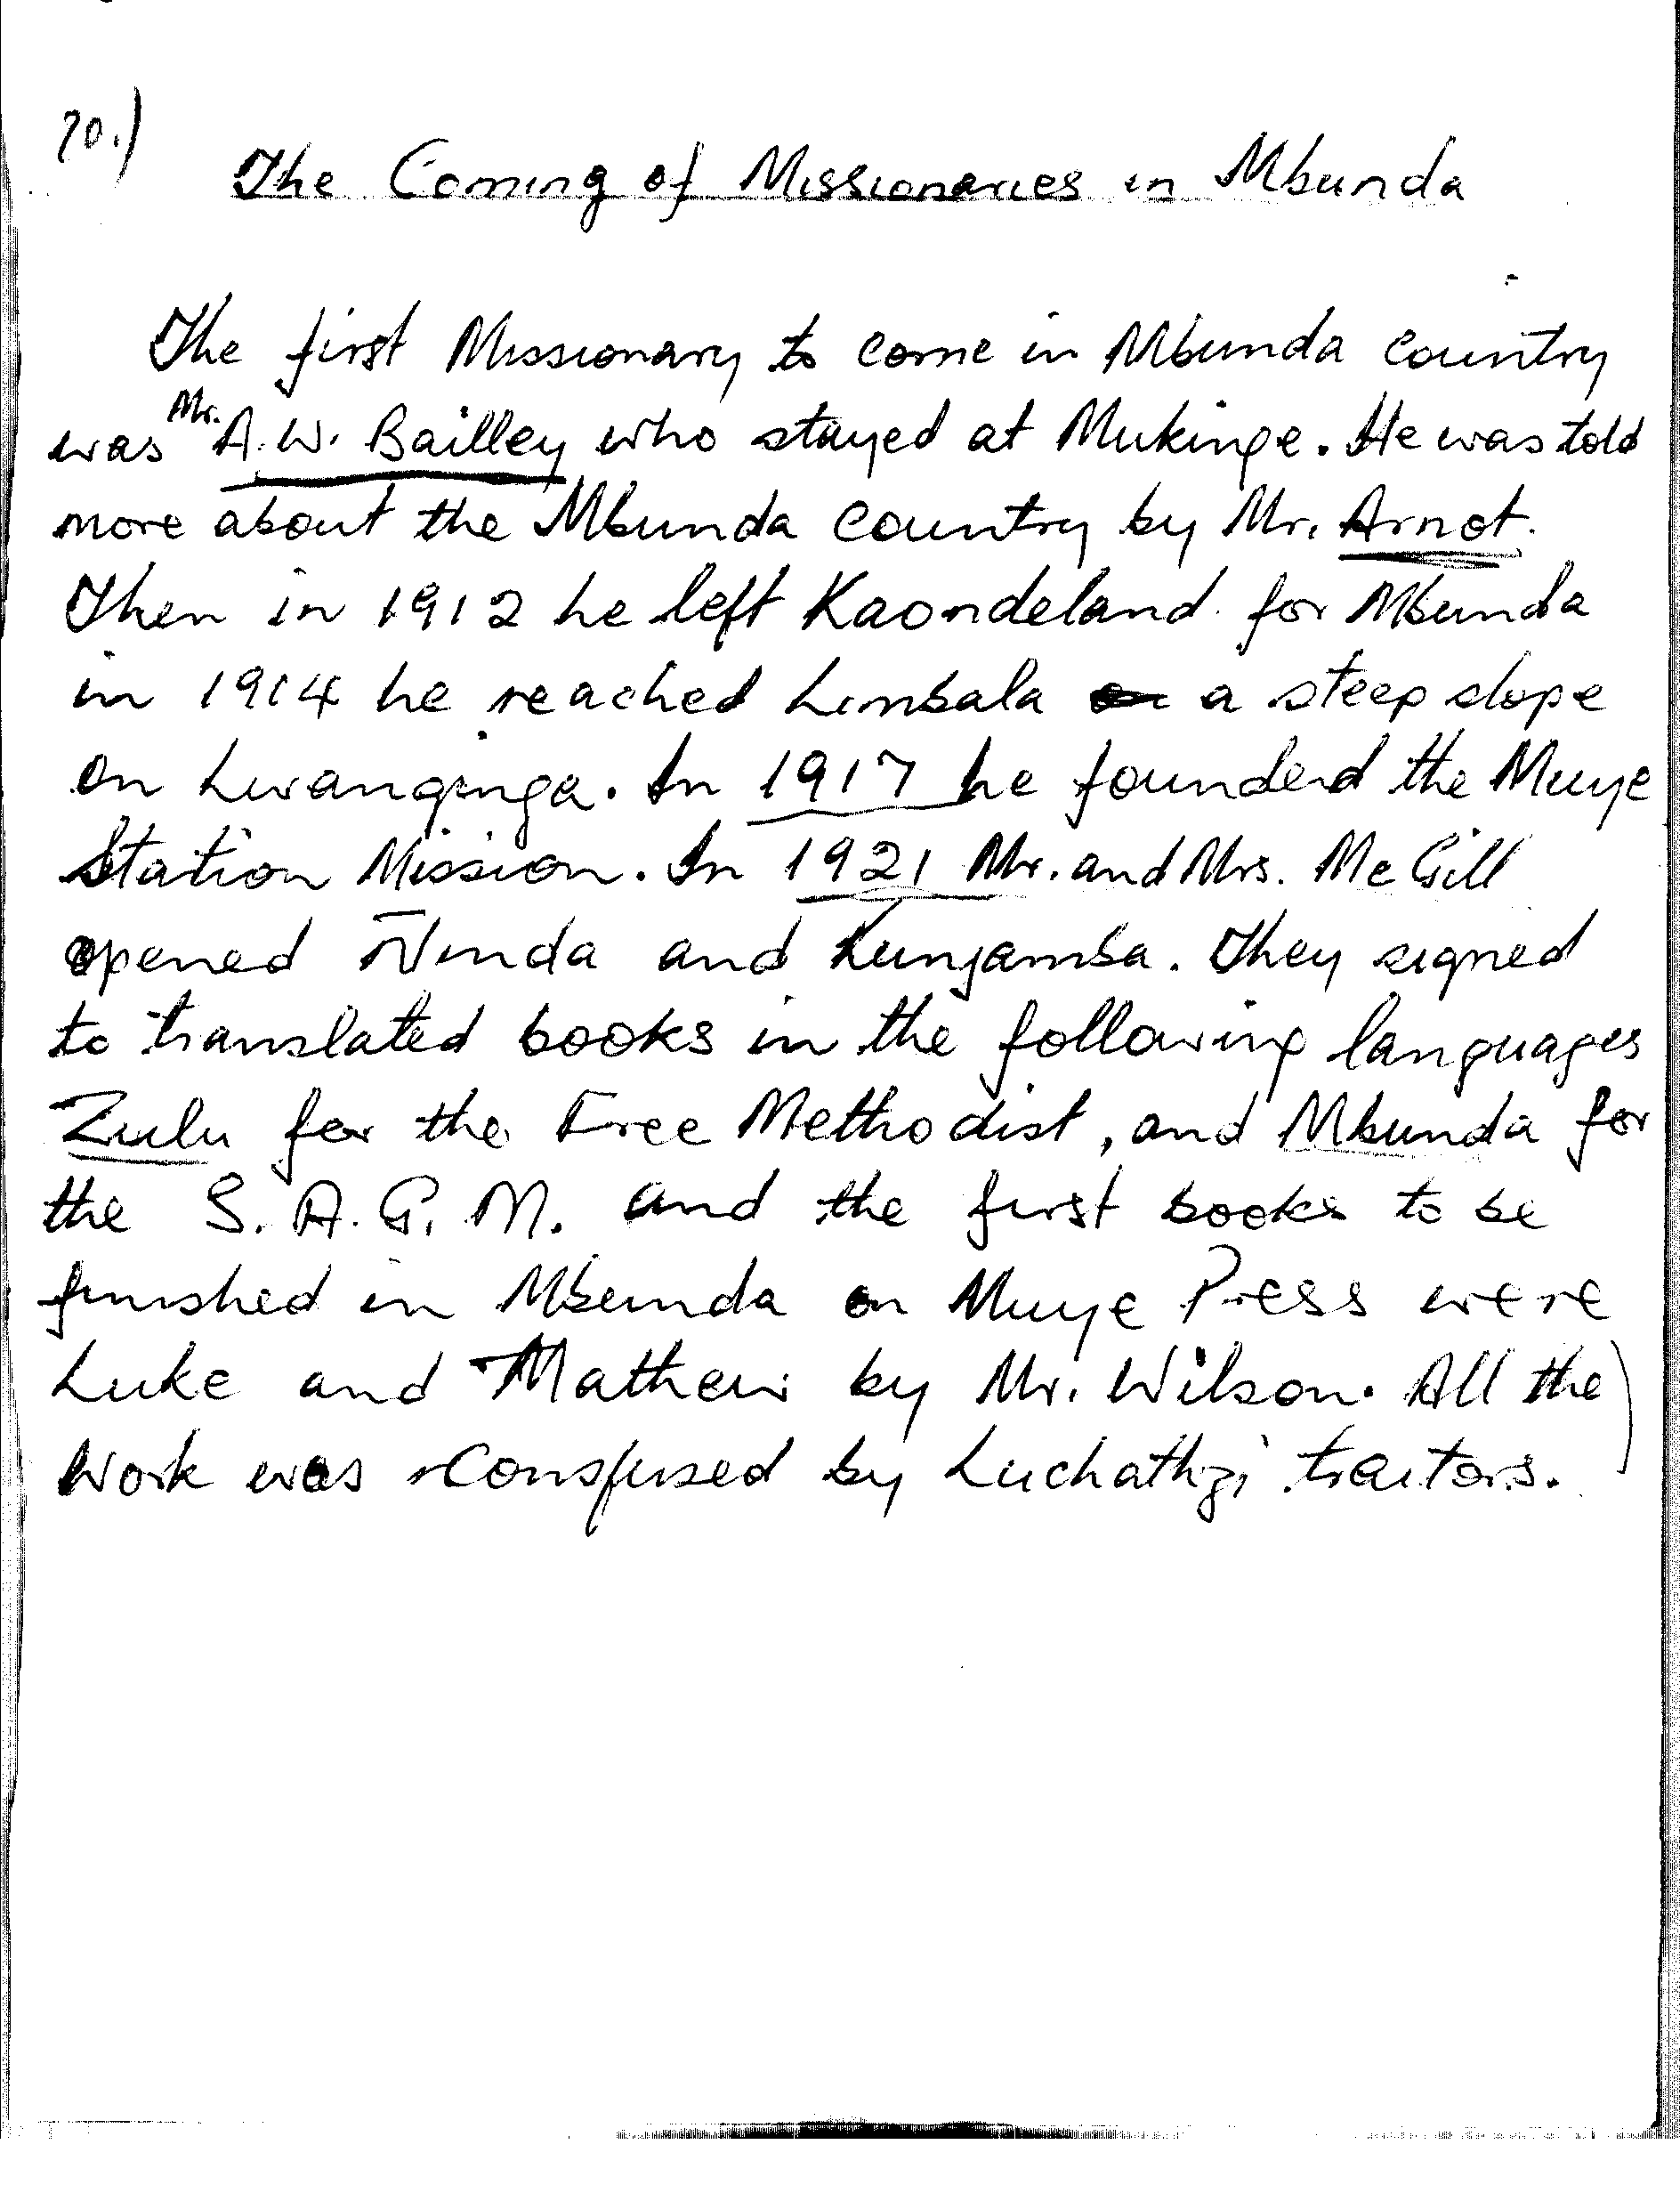 70.)
The Coming of Missionaries in Mbunda
The first Missionary to come in Mbunda country
was Mr. A.W. Bailley who stayed at Mukinge. He was told
more about the Mbunda country by Mr. Arnot.
Then in 1912 he left Kaondeland for Mbunda
in 1914 he reached Limbala a steep slope
on Lwanginga. In 1917 he founded the Muye
Station Mission. In 1921 Mr. and Mrs. Mc Gill
opened Ninda and Kunjamba. They signed
to translated books in the following languages
Zulu for the Free Methodist, and Mbunda for
the S. A. G. M. and the first books to be
finished in Mbunda on Muye Press were
Luke and Mathew by Mr. Wilson. All the
Work was Consfused by Luchathzi traitors.